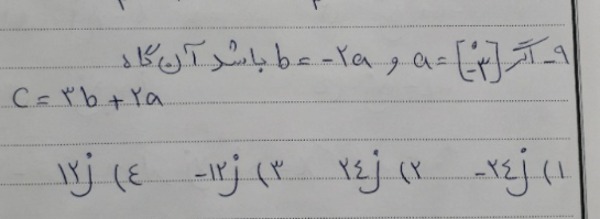 ۹- اگر a = [۰ -۳] و b = -۲a باشد آن گاه
C = ۳b + ۲a
۱) -۲۴j ۲) ۲۴j ۳) -۱۲j ۴) ۱۲j